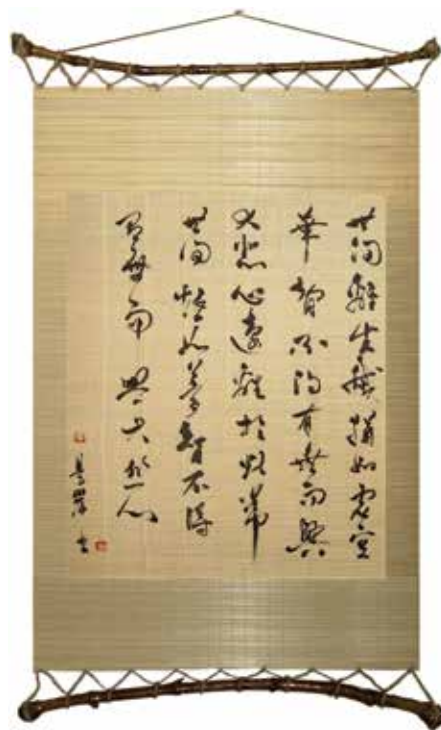 世間離生滅猶如虛空
華智不得有無而興
大悲心遠離於斷常
世間恒如夢智不得
有無而興大悲心
書